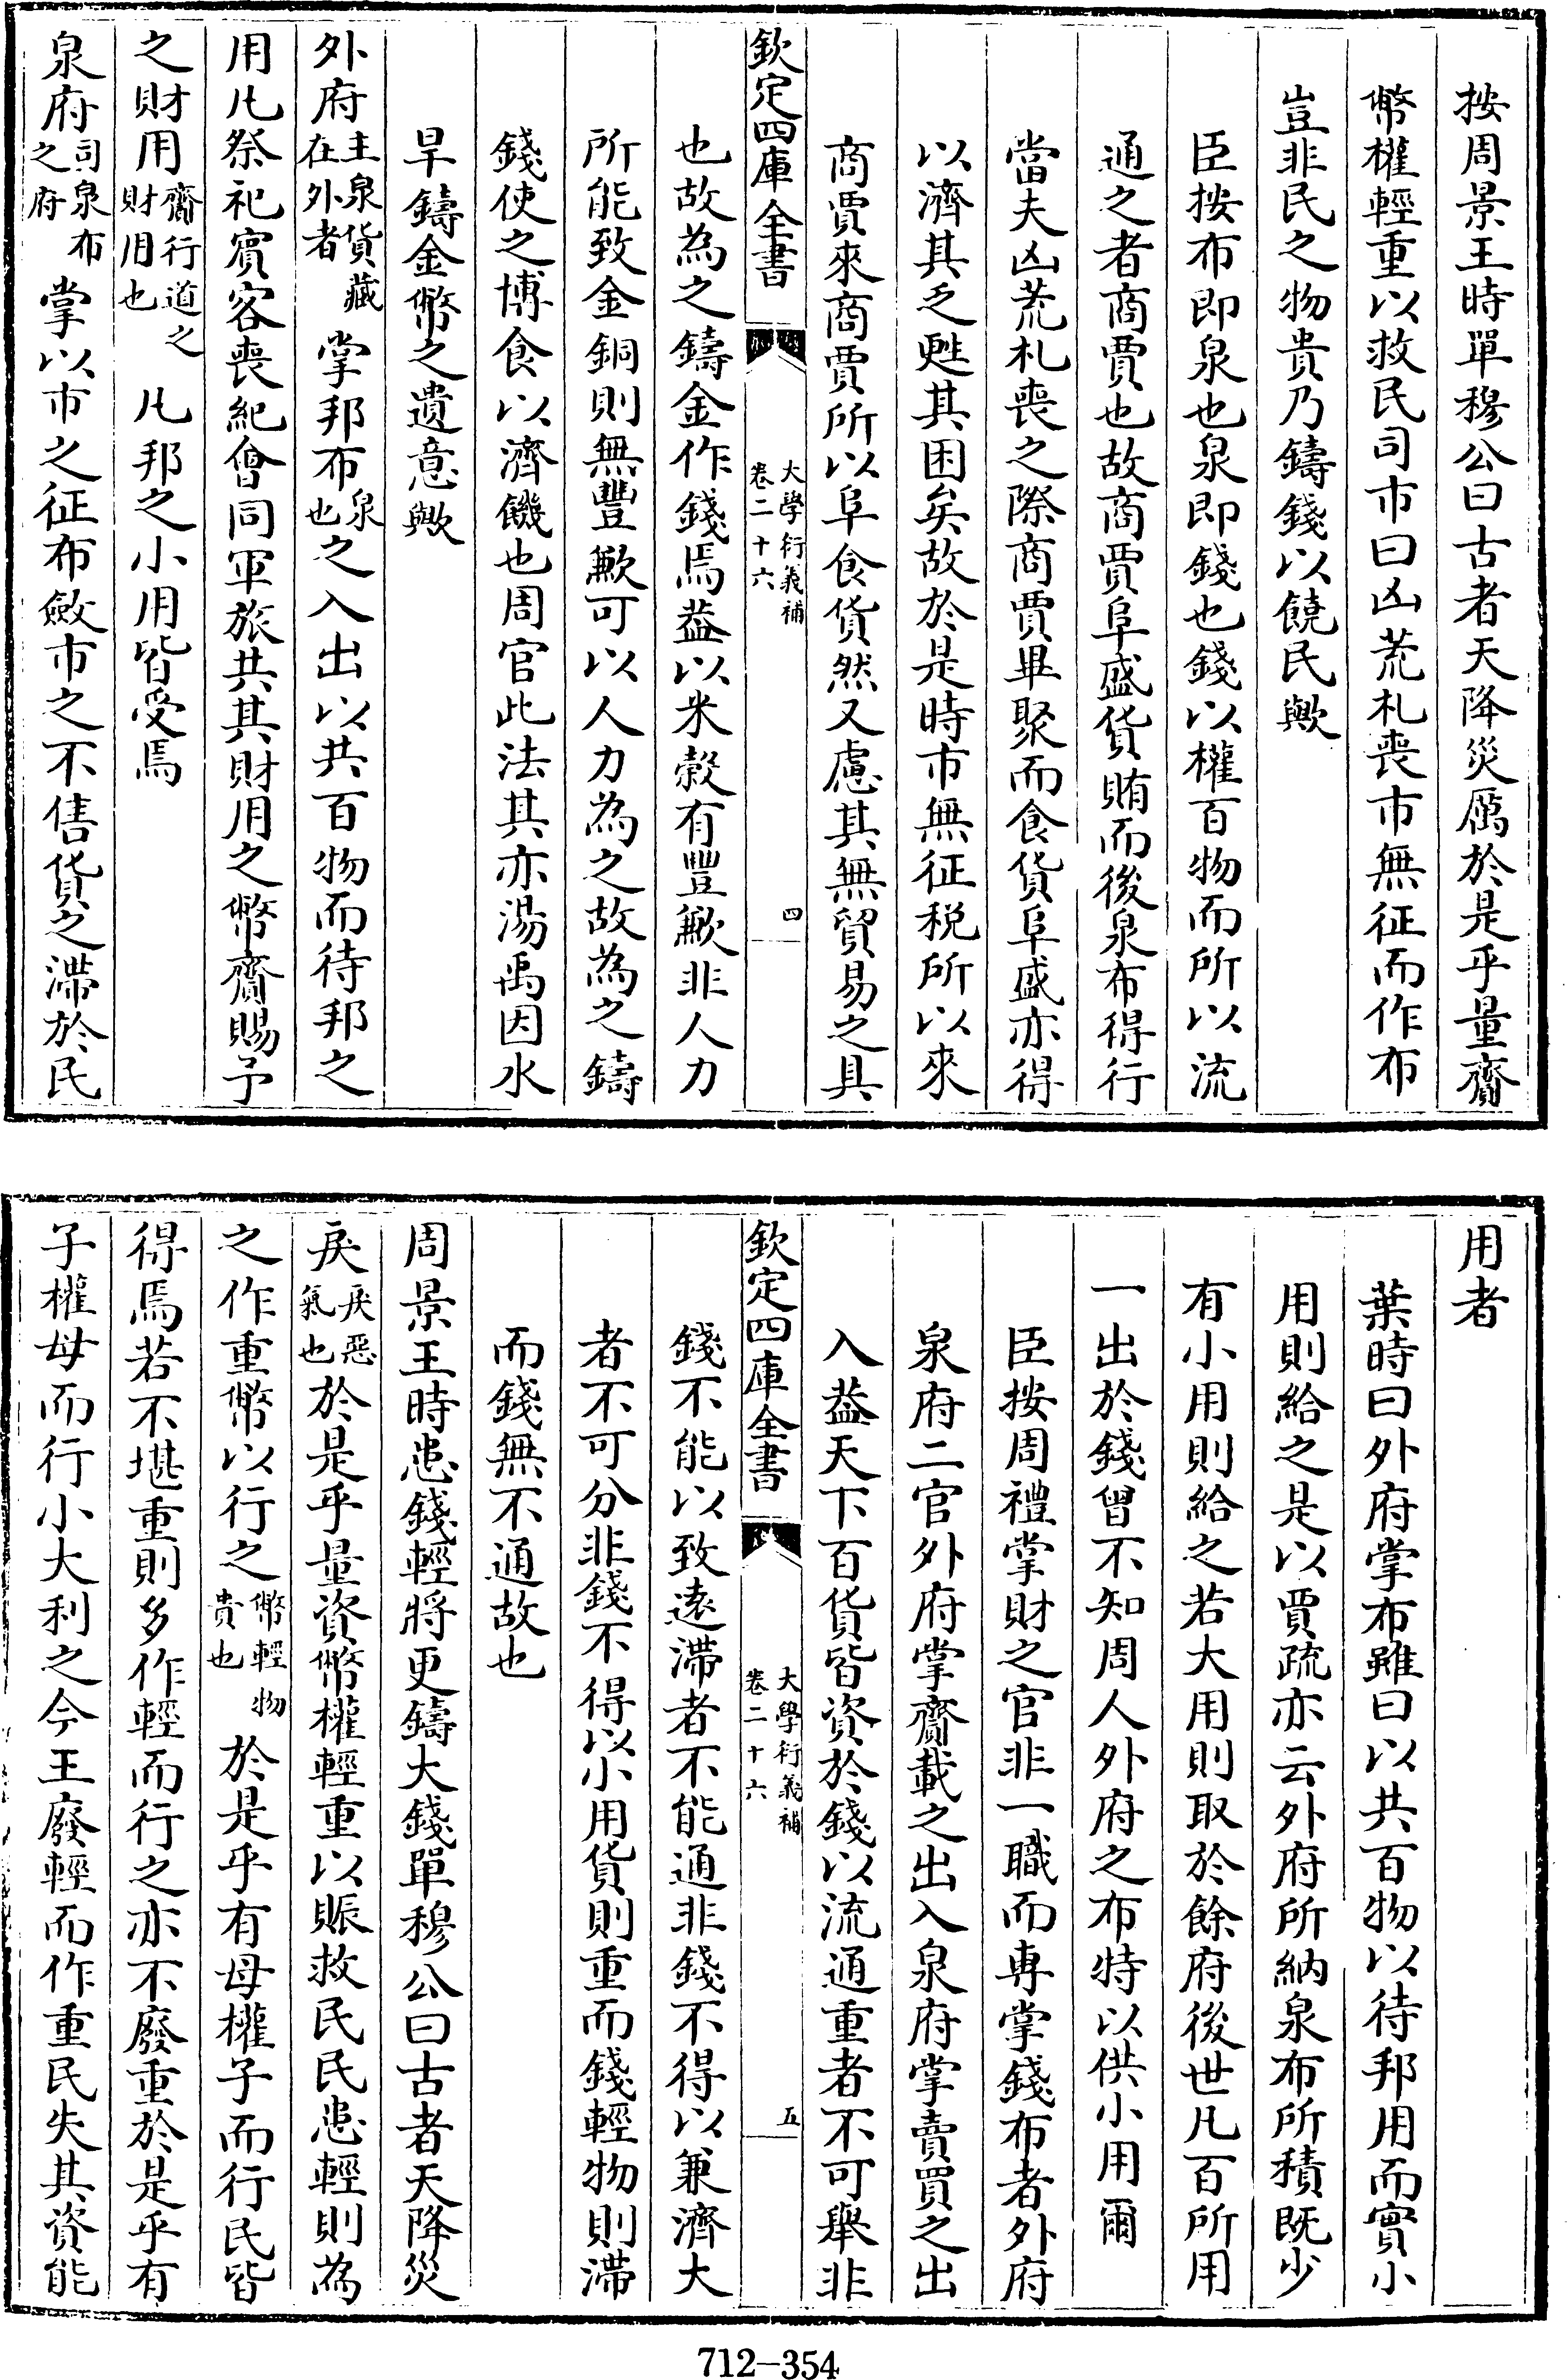 按周景王時單穆公曰古者天降災厲於是乎量齎
幣權輕重以救民司市曰凶荒札喪市無征而作布
豈非民之物貴乃鑄錢以饒民歟
臣按布即泉也泉即錢也錢以權百物而所以流
通之者商賈也故商賈阜盛貨賄而後泉布得行
當夫凶荒札喪之際商賈畢聚而食貨阜盛亦得
以濟其乏甦其困矣故於是時市無征税所以來
商賈來商賈所以阜食貨然又慮其無貿易之具
欽定四庫全書
大學衍義補
卷二十六
四
也故為之鑄金作錢焉葢以米榖有豐歉非人力
所能致金銅則無豐歉可以人力為之故為之鑄
錢使之博食以濟饑也周官此法其亦湯禹因水
旱鑄金幣之遺意歟
外府主泉貨藏在外者掌邦布泉也之入出以共百物而待邦之
用凡祭祀賔客喪紀㑹同軍旅共其財用之幣齎賜予
之財用齎行道之財用也凡邦之小用皆受焉
泉府司泉布之府掌以市之征布斂市之不售貨之滯於民
用者
葉時曰外府掌布雖曰以共百物以待邦用而實小
用則給之是以賈疏亦云外府所納泉布所積既少
有小用則給之若大用則取於餘府後世凡百所用
一出於錢曽不知周人外府之布特以供小用爾
臣按周禮掌財之官非一職而專掌錢布者外府
泉府二官外府掌齎載之出入泉府掌賣買之出
入葢天下百貨皆資於錢以流通重者不可舉非
欽定四庫全書
大學衍義補
卷二十六
五
錢不能以致遠滯者不能通非錢不得以兼濟大
者不可分非錢不得以小用貨則重而錢輕物則滯
而錢無不通故也
周景王時患錢輕將更鑄大錢單穆公曰古者天降災
戾戾惡氣也於是乎量資幣權輕重以賑救民民患輕則為
之作重幣以行之幣輕物貴也於是乎有母權子而行民皆
得焉若不堪重則多作輕而行之亦不廢重於是乎有
子權母而行小大利之今王廢輕而作重民失其資能
712-354